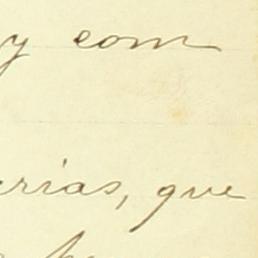 y com
erias, que